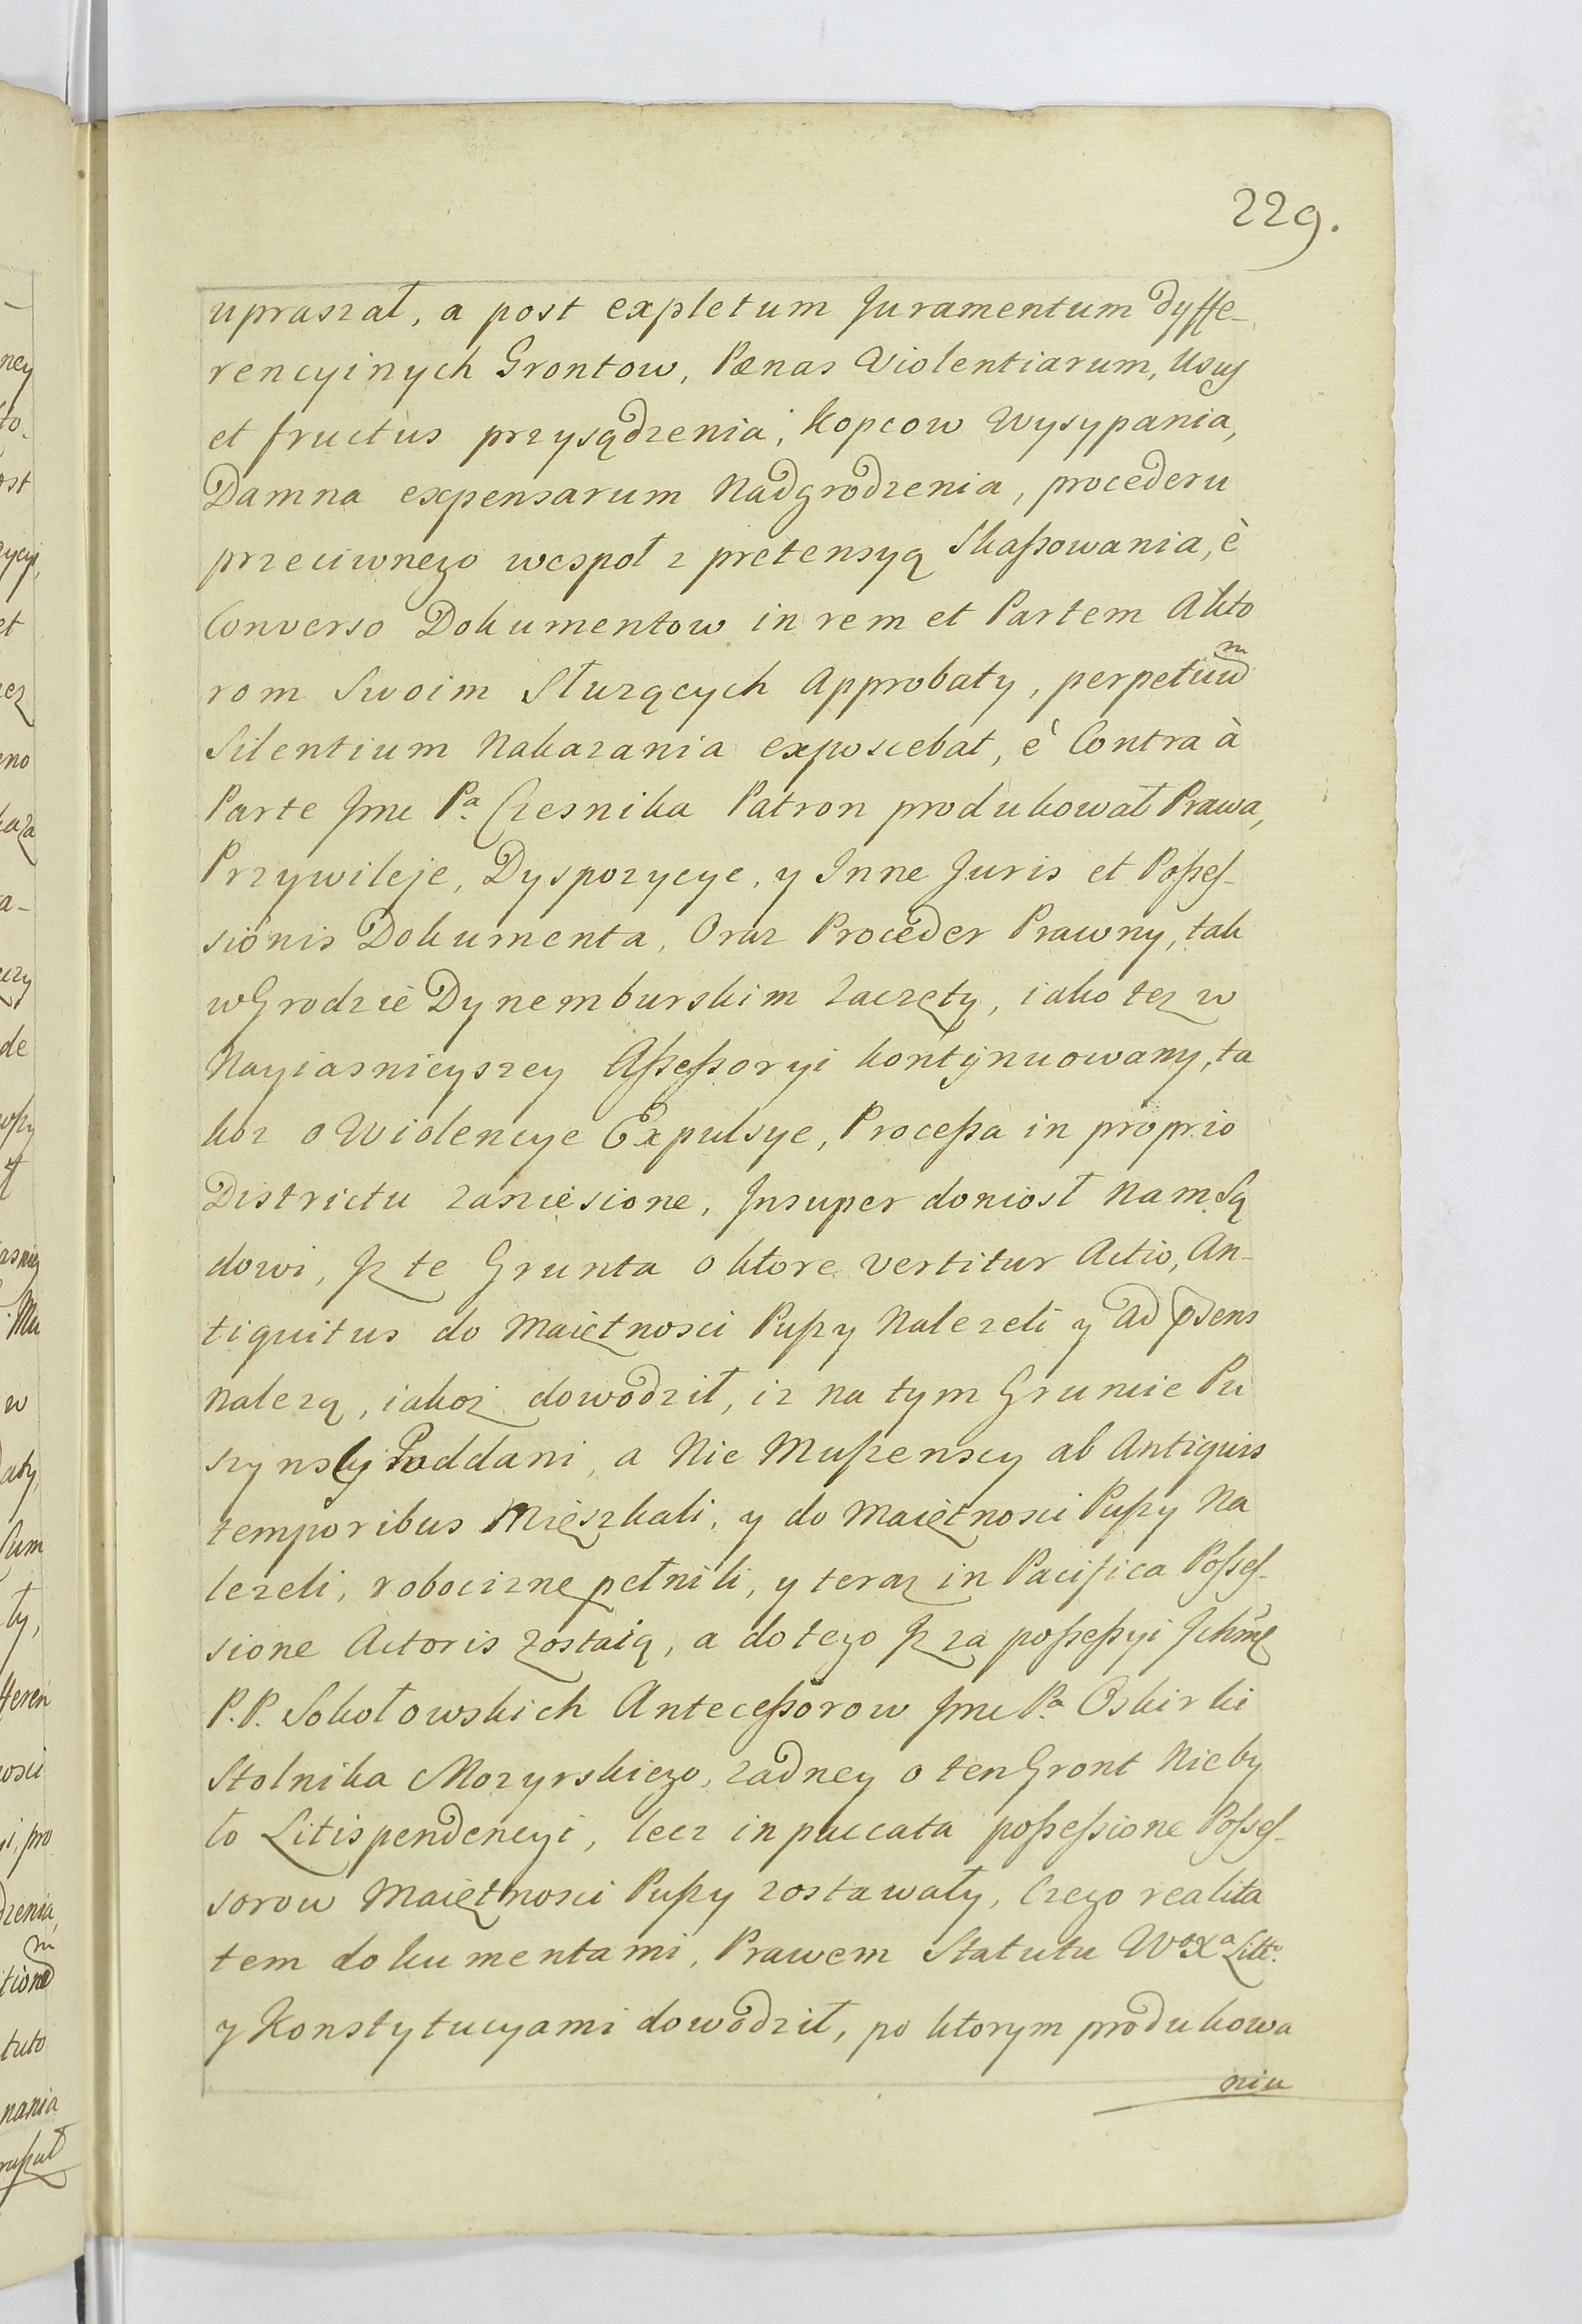 229.
upraszał, a post expletum Juramentum dyffe-
rencyinych Grontow, Pænas Violentiarum, Usus
et fructus przysądzenia, kopcow wysypania,
Damna expensarum Nadgrodzenia, procederu
przeciwnego wespoł z pretensyą Skaſsowania, è
Converso Dokumentow in rem et Partem Akto
rom Swoim Słuzących Approbaty, perpetuum
Silentium Nakazania exposcebat, è Contra à
Parte Jmc Pa. Czesnika Patron produkował Prawa,
Przywileje, Dyspozycye, y Inne Juris et Poſseſ-
sionis Dokumenta, Oraz Proceder Prawny, tak
w Grodzie Dynemburskim Zaczęty, iako tez w
Nayiasnieyszey Aſseſsoryi kontynuowany, ta
koz o Wiolencye Expulsye, Proceſsa in proprio
Districtu zaniesione, Insuper doniosł Nam Są
dowi, Jz te Grunta o ktore vertitur Actio, An-
tiquitus do Maiętnosci Puſzy Nalezeli y ad psens
Nalezą, iakoz dowodził, iz na tym Gruncie Pu
szynscy Poddani, a Nie Muſzenscy ab Antiquis
temporibus Mieszkali, y do Maiętnosci Puſzy Na
lezeli, robociznę pełnili, y teraz in Pacifica Poſseſ-
sione Actoris zostaią, a do tego Jz za poſseſsyi Jchmć
P.P. Sokołowskich Anteceſsorow Jmc Pa. Oskirki
Stolnika Mozyrskiego, zadney o ten Gront Nie by
ło Litispendencyi, lecz in paccata poſseſsione Poſseſ-
sorow Maiętnosci Puſzy zostawały, Czego realita
tem dokumentami, Prawem Statutu Wo Xa Litto.
y Konstytucyami dowodził, po ktorym produkowa
niu